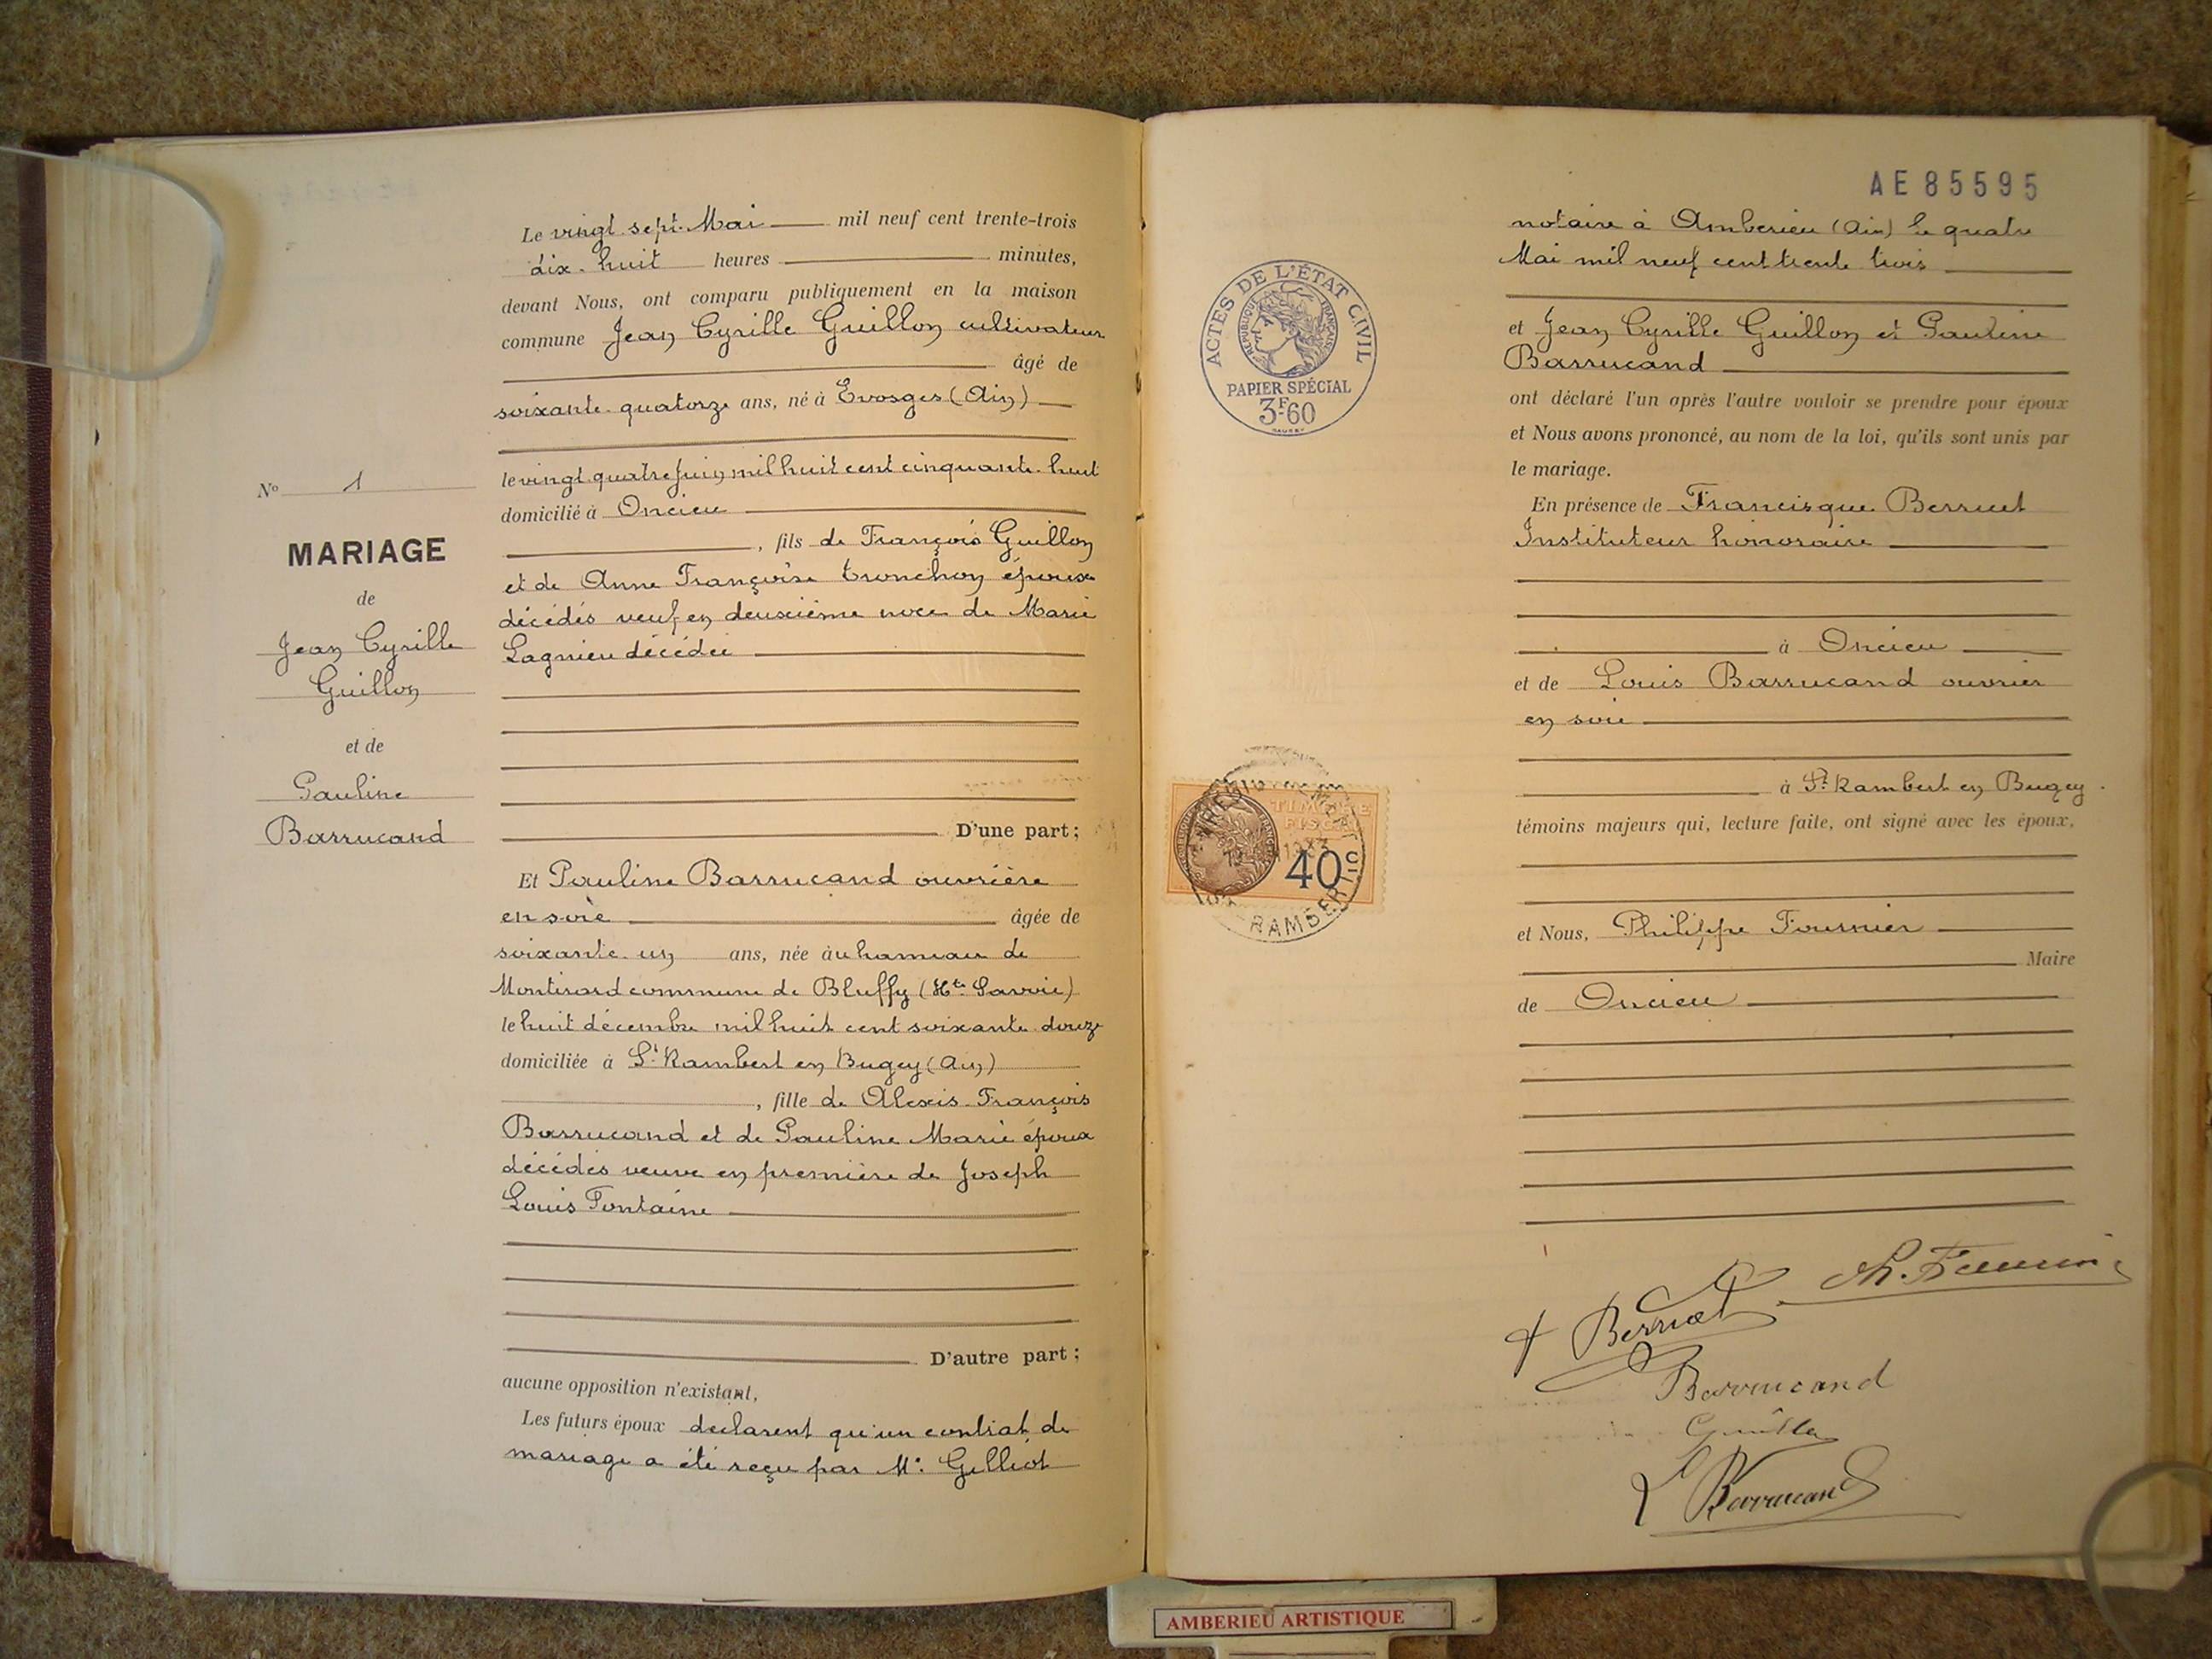 Le vingt sept Mai mil neuf cent trente-trois
dix-huit heures minutes,
devant Nous, ont comparu publiquement en la maison
commune Jean Cyrille Guillon cultivateur
âgé de
soixante-quatorze ans, né à Evosges (Ain)
le vingt quatre juin mil huit cent cinquante-huit
domicilié à Oncieu
, fils de François Guillon
et de Anne Françoise Tronchon époux
décédés veuf en deuxième noce de Marie
Lagnieu décédée
D'une part;
Nº 1
MARIAGE
de
Jean Cyrille
Guillon
et de
Pauline
Barrucand
Et Pauline Barrucand ouvrière
en soie âgée de
soixante-un ans, née au hameau de
commune de Bluffy (Hte Savoie)
le huit décembre mil huit cent soixante-douze
domiciliée à St Rambert en Bugey (Ain)
, fille de Alexis-François
Barrucand et de Pauline Marie époux
décédés veuve en première de Joseph
Louis Fontaine
D'autre part;
aucune opposition n'existant,
Les futurs époux déclarent qu'un contrat de
mariage a été reçu par Me Gelliot
AE85595
notaire à Amberieu (Ain) le quatre
Mai mil neuf cent trente trois
et Jean Cyrille Guillon et Pauline
Barrucand
ont déclaré l'un après l'autre vouloir se prendre pour époux
et Nous avons prononcé, au nom de la loi, qu'ils sont unis par
le mariage.
En présence de Francisque Berruet
Instituteur honoraire
à Oncieu
et de Louis Barrucand ouvrier
en soie
à St Rambert en Bugey.
témoins majeurs qui, lecture faite, ont signé avec les époux,
et Nous, Philippe Fournier
Maire
de Oncieu
Ph. Fournier
Berruet
Barrucand
Guillon
L Barrucand
ACTES DE L'ÉTAT CIVIL
RÉPUBLIQUE FRANÇAISE
PAPIER SPÉCIAL
3F60
TIMBRE
FISCAL
1933
40c
RAMBERT
AMBERIEU ARTISTIQUE